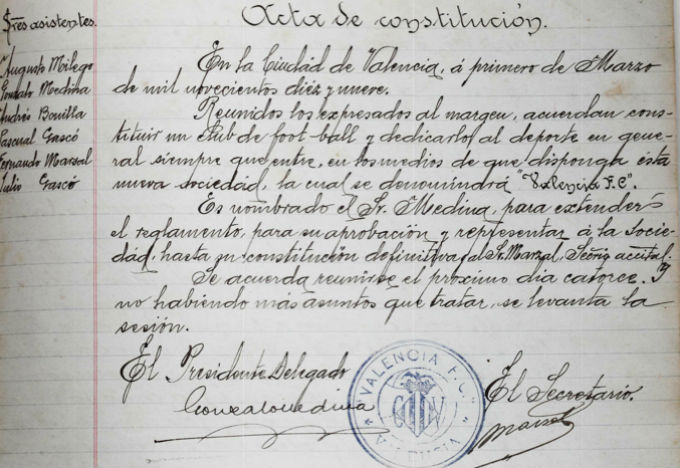 Sres asistentes.
Augusto Milego
Gonzalo Medina
Andrés Bonilla
Pascual Gascó
Fernando Marzal
Julio Gascó
Acta de constitución.
En la Ciudad de Valencia, á primero de Marzo
de mil novecientos diez y nueve.
Reunidos los expresados al margen, acuerdan cons-
tituir un club de foot-ball y dedicarlo, al deporte en gene-
ral siempre que entre, en los medios de que disponga ésta
nueva sociedad, la cual se denominará "Valencia F.C".
Es nombrado el Sr. Medina, para extender
el reglamento, para su aprobación y representar á la Socie-
dad, hasta su constitución definitiva, al Sr. Marzal
Se acuerda reunirse el próximo dia catorce. Y
no habiendo más asuntos que tratar, se levanta la
sesión.
El Presidente Delegado
Gonzalo Medina
VALENCIA F.C.
El Secretario.
Marzal